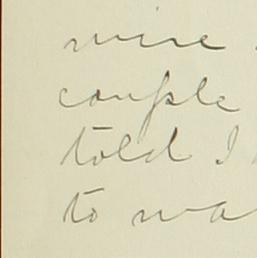 wire
couple
told I
to wa